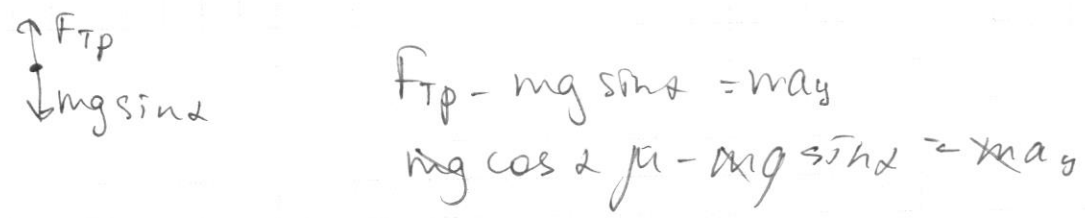 Fтр
mg sinα
Fтр - mg sinα = may
mg cos α μ - mg sinα = may